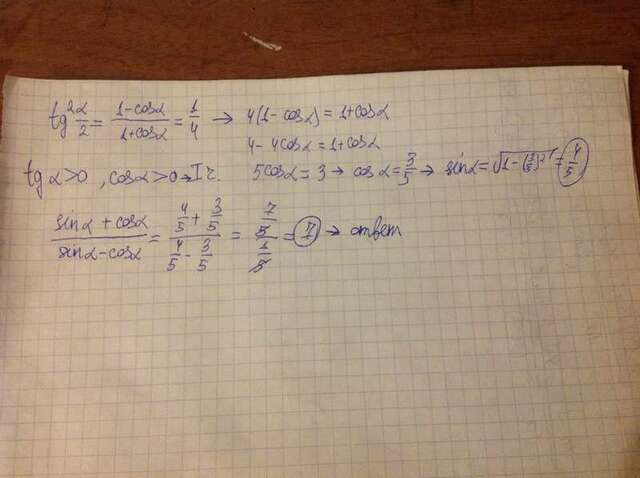 tg² α/2 = (1-cosα)/(1+cosα) = 1/4 → 4(1-cosα) = 1+cosα
4-4cosα = 1+cosα
tgα>0, cosα>0 → I г. 5cosα = 3 → cosα = 3/5 → sinα = √(1-(3/5)²) = 4/5
(sinα + cosα)/(sinα-cosα) = (4/5 + 3/5)/(4/5 - 3/5) = (7/5)/(1/5) = 7 → ответ